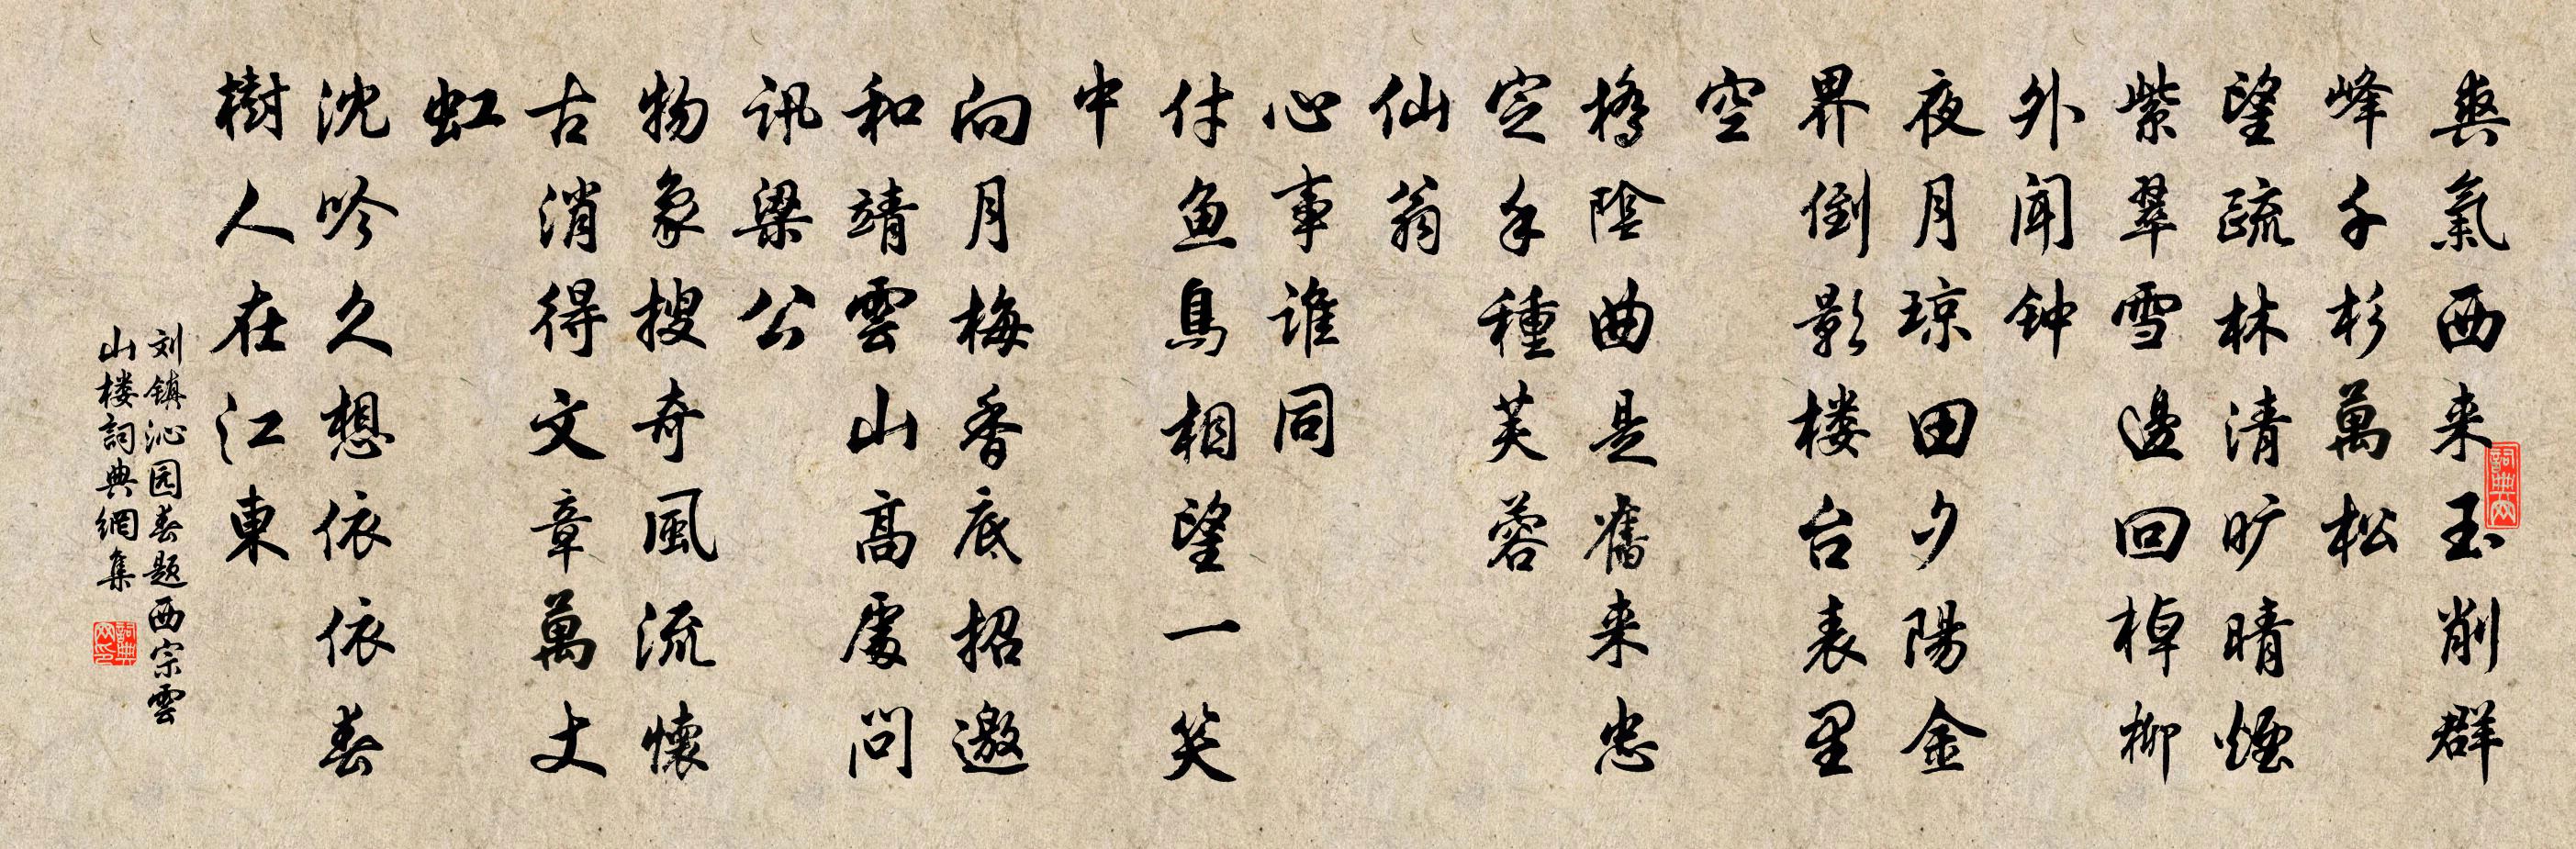 爽氣西来玉削群
峰千杉萬松
望疏林清旷晴煙
紫翠雪邊回棹柳
外闻钟
夜月琼田夕陽金
界倒影楼台表里
空
橋陰曲是舊来忠
定手種芙蓉
仙翁
心事谁同
付鱼鳥相望一笑
中
向月梅香底招邀
和靖雲山高處問
讯梁公
物象搜奇風流懷
古消得文章萬丈
虹
沈吟久想依依春
樹人在江東
刘镇沁园春题西宗雲
山楼詞典網集
詞典网
詞典网印